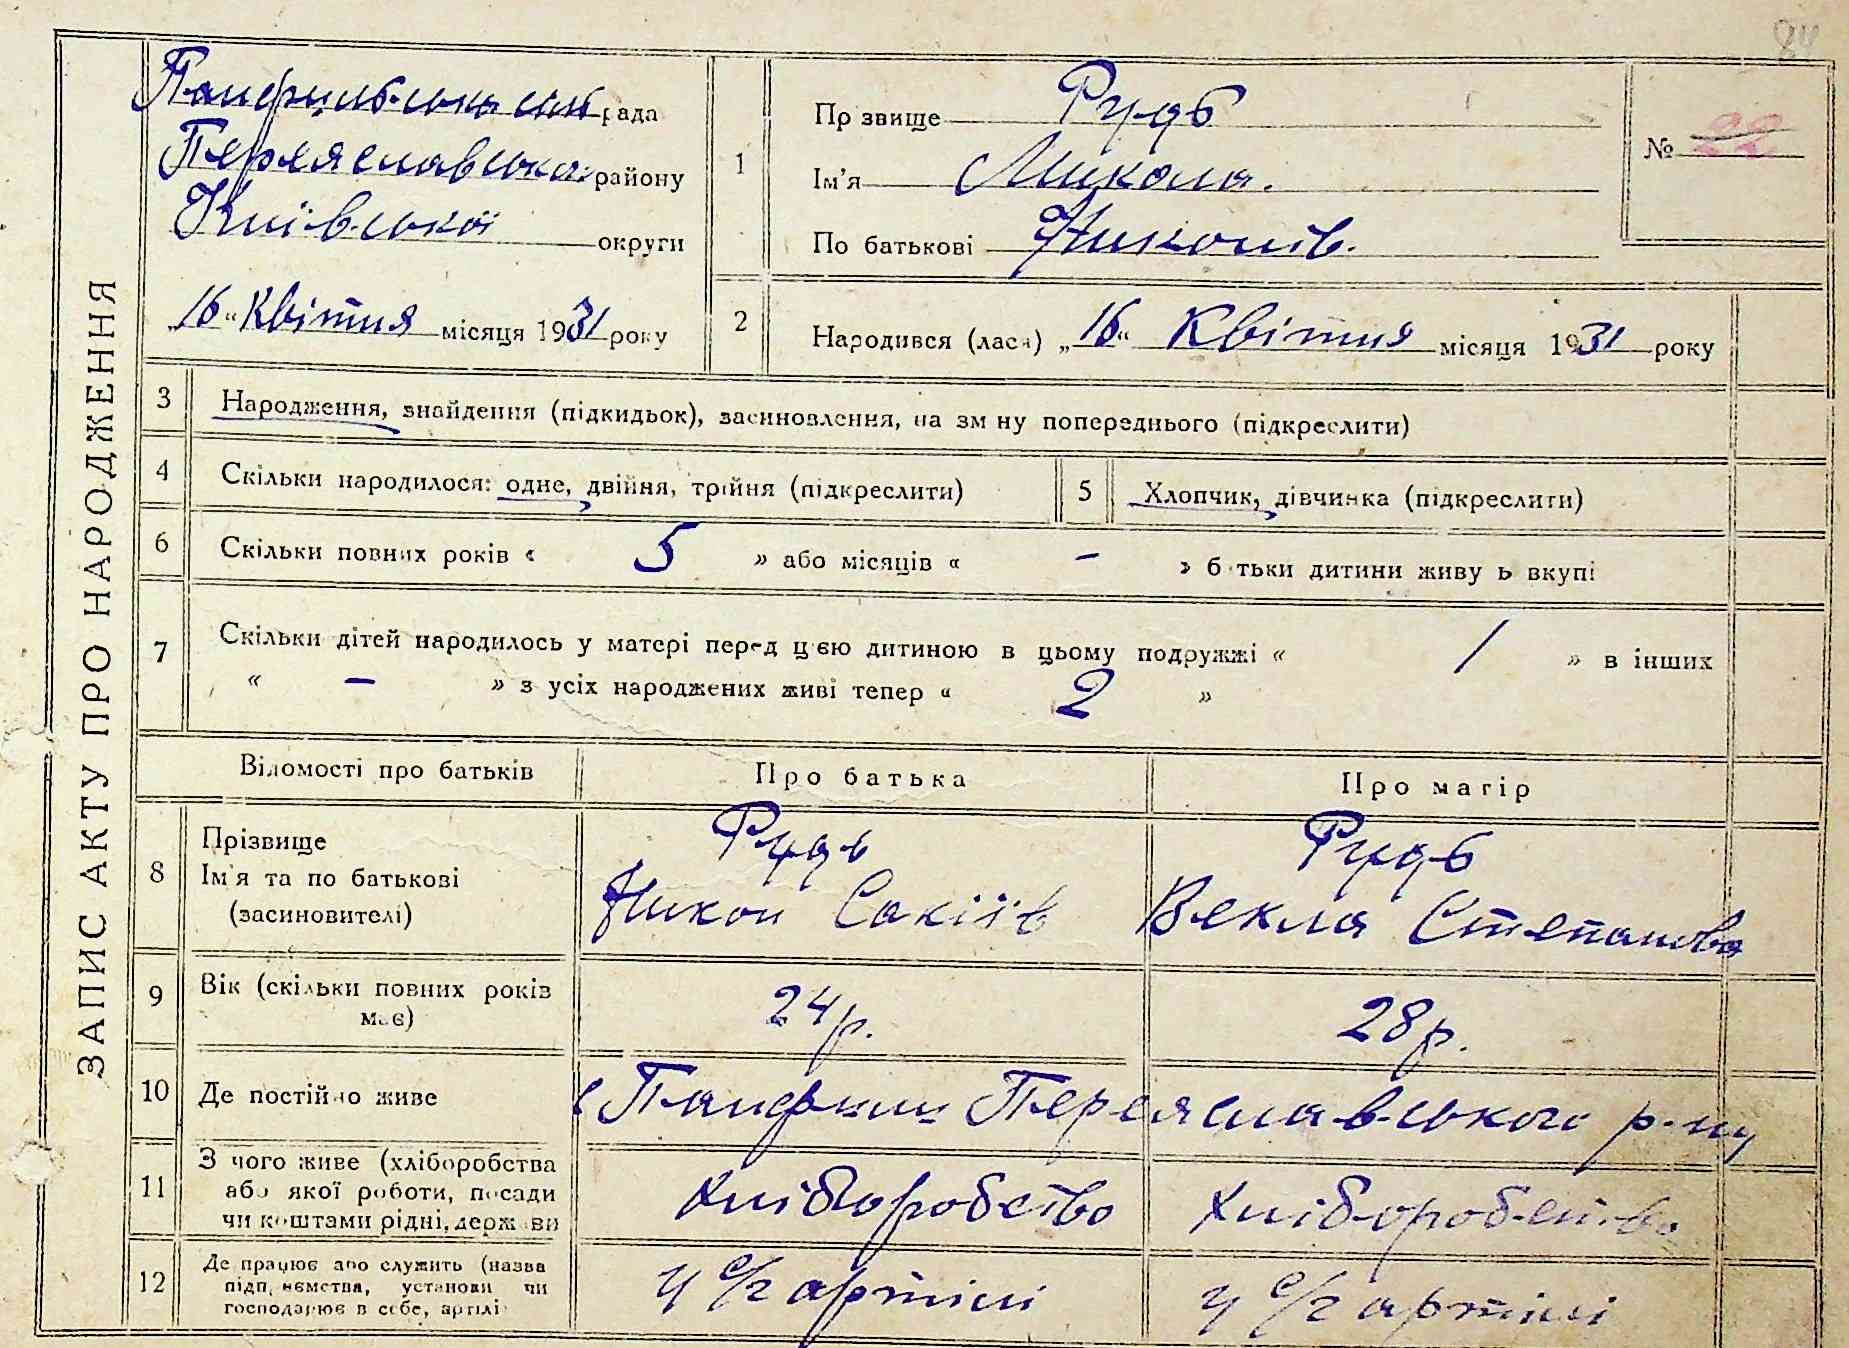 84
ЗАПИС АКТУ ПРО НАРОДЖЕННЯ
Панфильська сіль рада
Переяславська району
Київської округи
„16“ Квітня місяця 1931 року
1
Пр звище Рудь
Ім'я Микола.
По батькові Никонів.
№ 22
2
Народився (лася) „16“ Квітня місяця 1931 року
3 Народження, знайдення (підкидьок), засиновлення, на зм ну попереднього (підкреслити)
4 Скільки народилося: одне, двійня, трійня (підкреслити)
5 Хлопчик, дівчинка (підкреслити)
6 Скільки повних років « 5 » або місяців « – » б тьки дитини живу ь вкупі
7 Скільки дітей народилось у матері перед цією дитиною в цьому подружжі « 1 » в інших
« – » з усіх народжених живі тепер « 2 »
Відомості про батьків Про батька Про матір
8 Прізвище
Ім'я та по батькові
(засиновителі)
Рудь
Никон Сакіїв
Рудь
Векла Степанова
9 Вік (скільки повних років має)
24 р.
28 р.
10 Де постійно живе
с Панфили Переяславського р-ну
11 З чого живе (хліборобства
або якої роботи, посади
чи коштами рідні, держ ви
Хліборобство
Хліборобство
12 Де працює або служить (назва
підп иємства, установи чи
господарює в себе, артілі
у с/г артілі
у с/г артілі